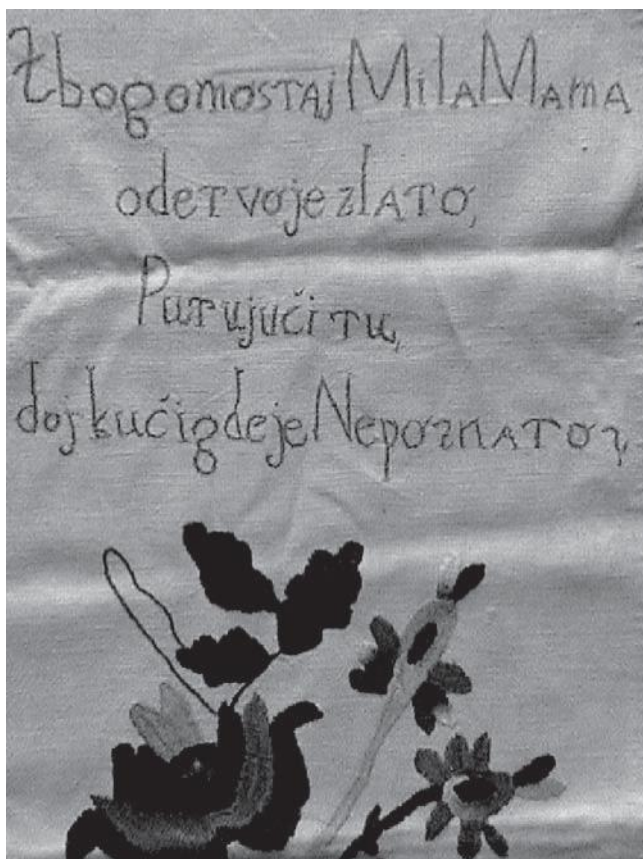 Zbogomostaj Mila Mama
odetvojezlato,
Putujući tu,
dojkućigdeje Nepoznato,